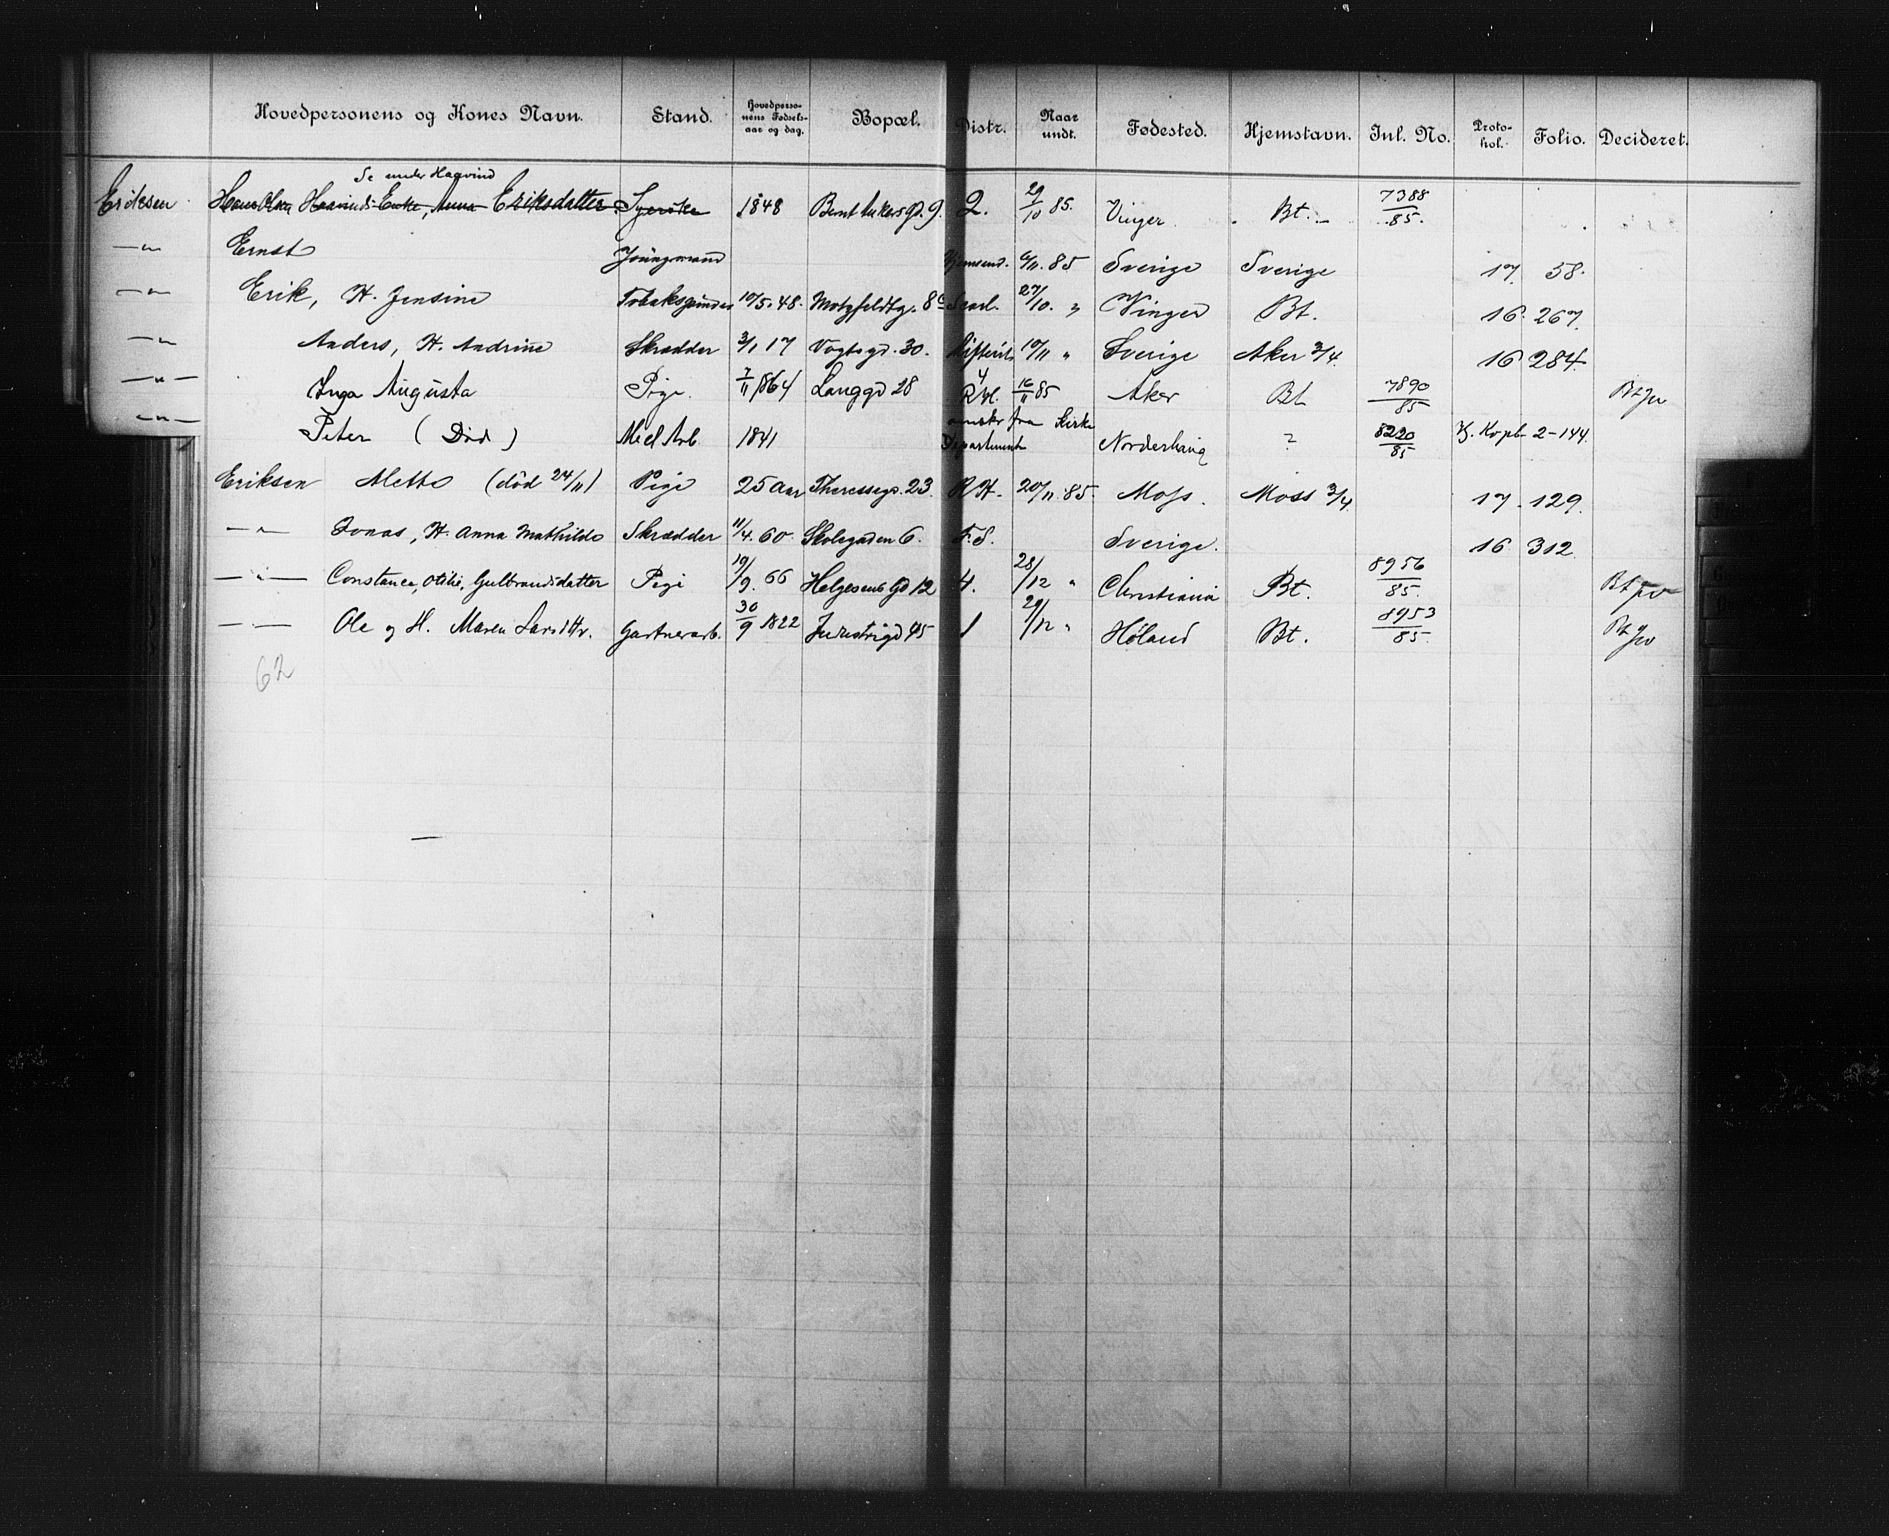 Hovedpersonens og Kones Navn. Stand. Hovedpersonens Fødselsaar og dag. Bopæl. Distr. Naar undt. Fødested. Hjemstavn. Inl. No. Protokol. Folio. Decideret.
Se under Haavind
Eriksen Enke, Anna Eriksdatter. Syerske 1848 Bent Ankersgd. 9. 2. 29/10 85. Vinger Bt. 7388/85.
—"— Ernst Jöungmand 6/11. 85 Sverige Sverige 17. 58.
—"— Erik, H. Jensine Tobakspinder 10/5. 48. Motzfeldtg. 8c 27/10. " Vinger Bt. 16. 267.
—"— Anders, H. Andrine Skrædder 3/1 17 Vogtsgd. 30. 10/11 " Sverige Aker 3/4. 16 284.
—"— Inga Augusta Pige. 7/11 1864 Langgd 28 4 R.H. 16/11 85 Aker Bt 7890/85
—"— Peter (Död) 1841 fra Kirke Departement Norderhaug ? 8220/85 2-144.
Eriksen Mette (död 24/11) Pige 25 Aar Theresesg. 23. R H. 20/11. 85. Moss. Moss 3/4. 17. 129.
—"— Jonas, H. Anna Mathilde Skrædder 11/4. 60. Skolegaden 6. F. S. Sverige. 16 312.
—"— Constance, Otilie, Gulbrandsdatter Pige 19/9. 66 Helgesens Gd 12 4. 28/12 " Christiania Bt. 8956/85.
—"— Ole og H. Maren Larsdttr. Gartnerarb. 30/9 1822 Industrigd 45 1 29/12 " Høland Bt. 8953/85.
62